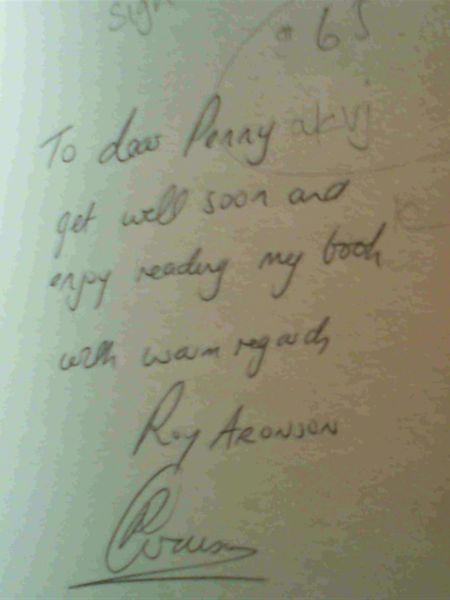 sign
65
To dear Penny
get well soon and
enjoy reading my book
with warm regards
Roy ARONSON